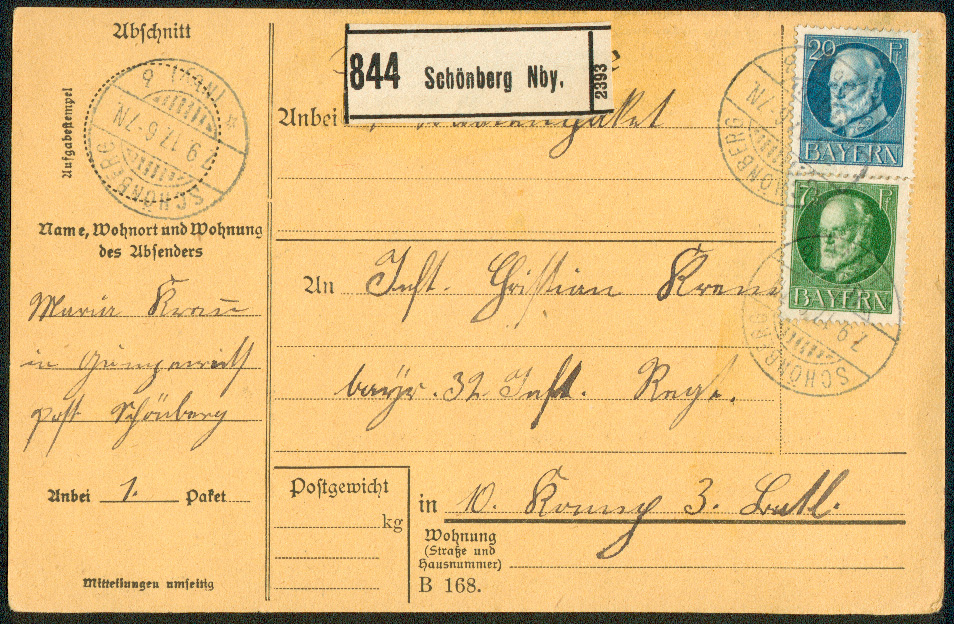 Abschnitt
Aufgabestempel
SCHÖNBERG
7 9. 17. 6-7N.
Name, Wohnort und Wohnung
des Absenders
Maria Krau
in
post Schönberg
Anbei 1. Paket
Mitteilungen umseitig
844 Schönberg Nby.
2393
Anbei
An Inft. Christian
bayr. 32. Inft. Regt.
Postgewicht
kg
in 10. Komp 3. Batl.
Wohnung
(Straße und
Hausnummer)
B 168.
20 Pf
BAYERN
SCHÖNBERG
7½ Pf
BAYERN
SCHÖNBERG
7 9. 17.